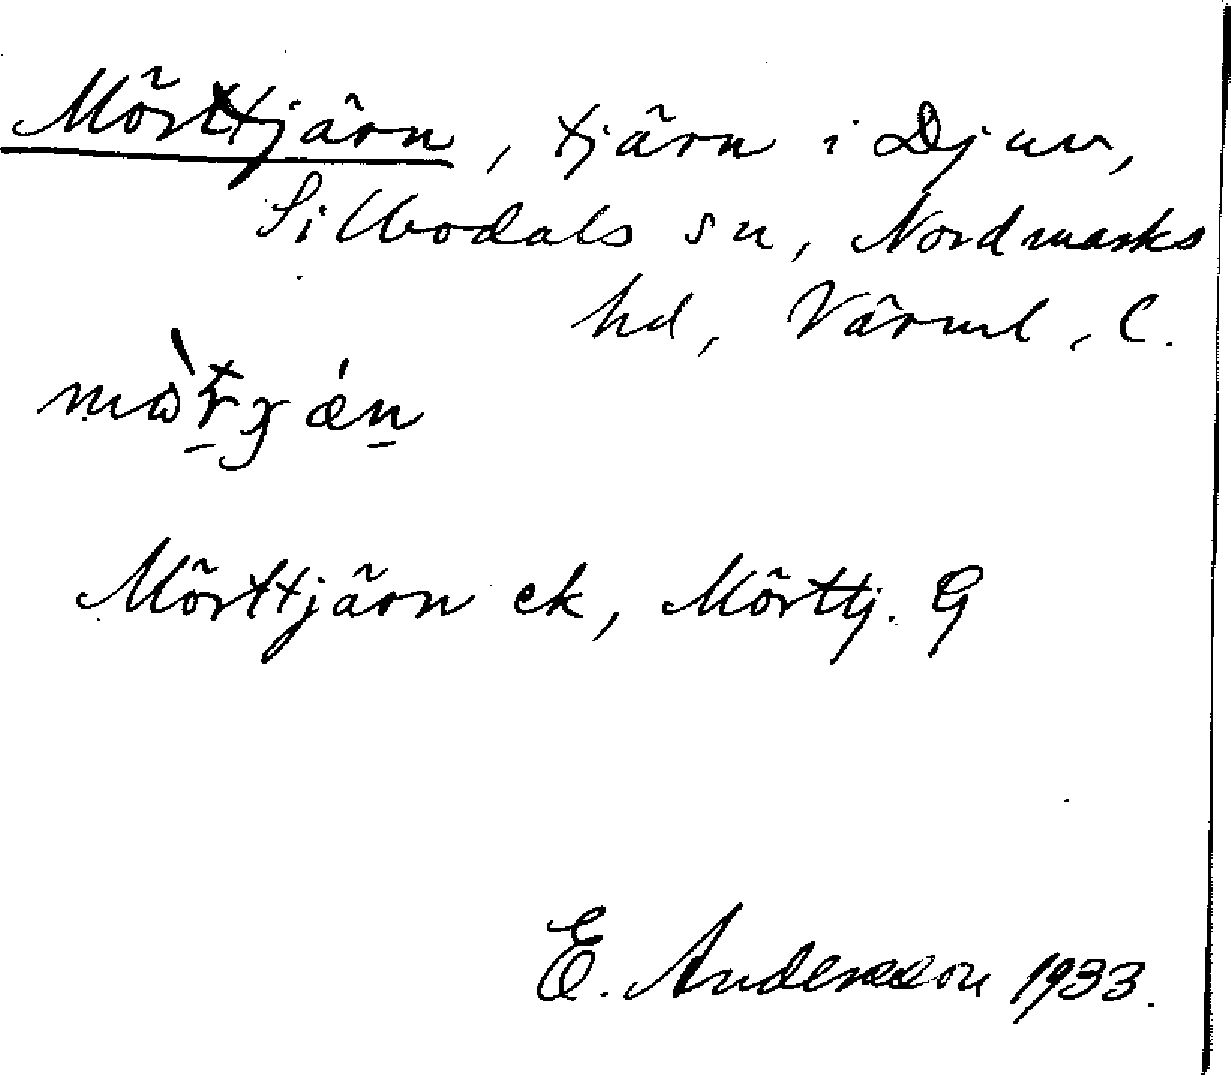 Mörttjärn, tjärn i Djuv,
Sillbodals sn, Nordmarks
hd, Värml. l.
Mörttjärn ek, Mörttj. G
E. Andersson 1933.